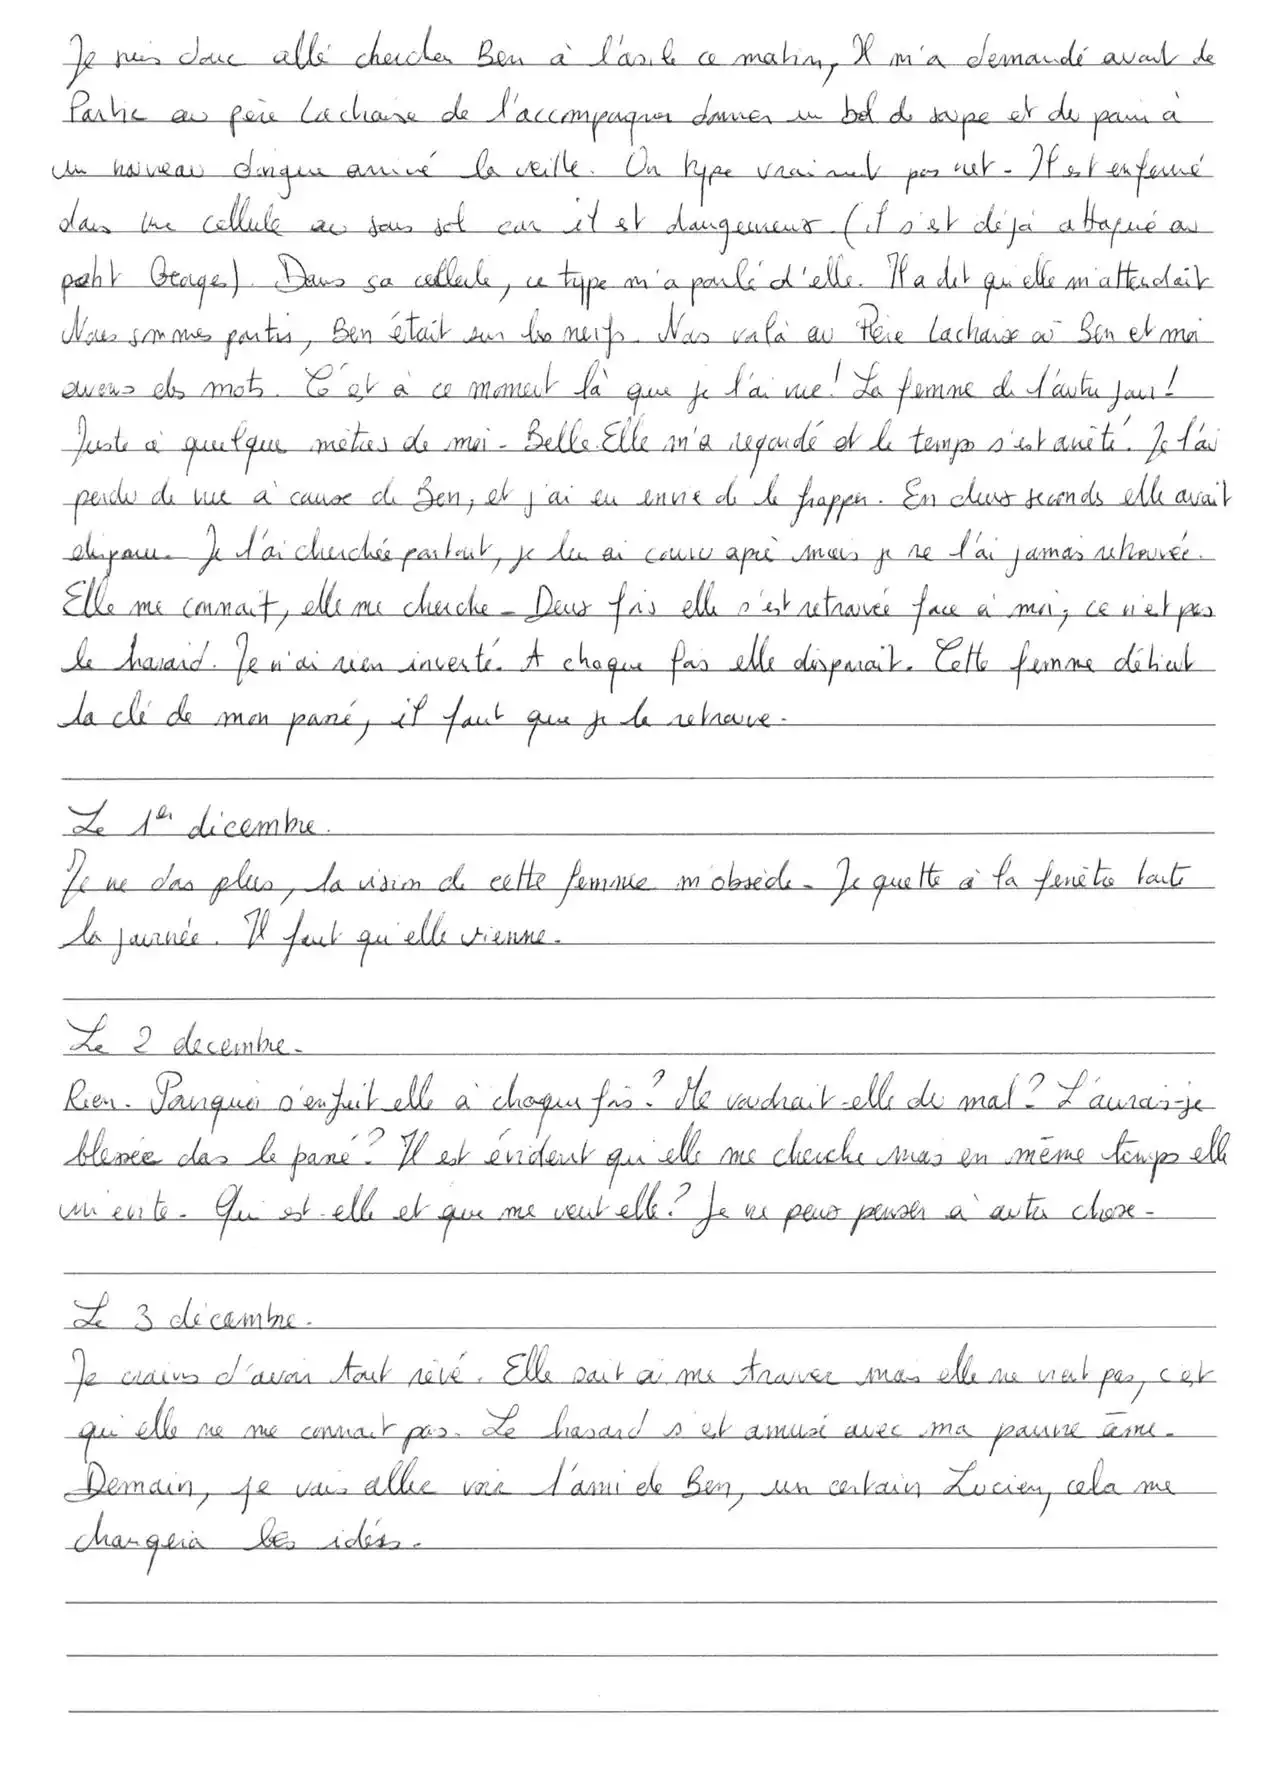 Je suis donc allé chercher Ben à l'asile ce matin, Il m'a demandé avant de
Partir au père Lachaise de l'accompagner donner un bol de soupe et du pain à
un nouveau dingue arrivé la veille. Un type vraiment pas net - Il est enfermé
dans une cellule au sous sol car il est dangereux (il s'est déjà attaqué au
petit Georges). Dans sa cellule, ce type m'a parlé d'elle. Il a dit qu'elle m'attendait
Nous sommes partis, Ben était sur les nerfs. Nos voilà au Père Lachaise où Ben et moi
avons des mots. C'est à ce moment là que je l'ai vue! La femme de l'autre jour!
Juste à quelque mètres de moi - Belle. Elle m'a regardé et le temps s'est arrêté. Je l'ai
perdu de vue à cause de Ben, et j'ai eu envie de le frapper. En deux seconds elle avait
disparu. Je l'ai cherchée partout, je lui ai couru après mais je ne l'ai jamais retrouvée.
Elle me connait, elle me cherche - Deux fois elle s'est retrouvée face à moi, ce n'est pas
le hasard. Je n'ai rien inventé. A chaque fois elle disparait. Cette femme détient
la clé de mon passé, il faut que je la retrouve.
Le 1er décembre.
Je ne dors plus, la vision de cette femme m'obsède - Je guette à la fenêtre toute
la journée. Il faut qu'elle vienne.
Le 2 decembre.
Rien. Pourquoi s'enfuit elle à chaque fois? Me voudrait-elle du mal? L'aurais-je
blessée dans le passé? Il est évident qu'elle me cherche mais en même temps elle
m'évite - Qui est-elle et que me veut elle? Je ne peux penser à autre chose -
Le 3 décembre.
Je crains d'avoir tout rêvé. Elle sait où me trouver mais elle ne vient pas, c'est
qu'elle ne me connait pas. Le hasard s'est amusé avec ma pauvre âme.
Demain, je vais aller voir l'ami de Ben, un certain Lucien, cela me
changera les idées.